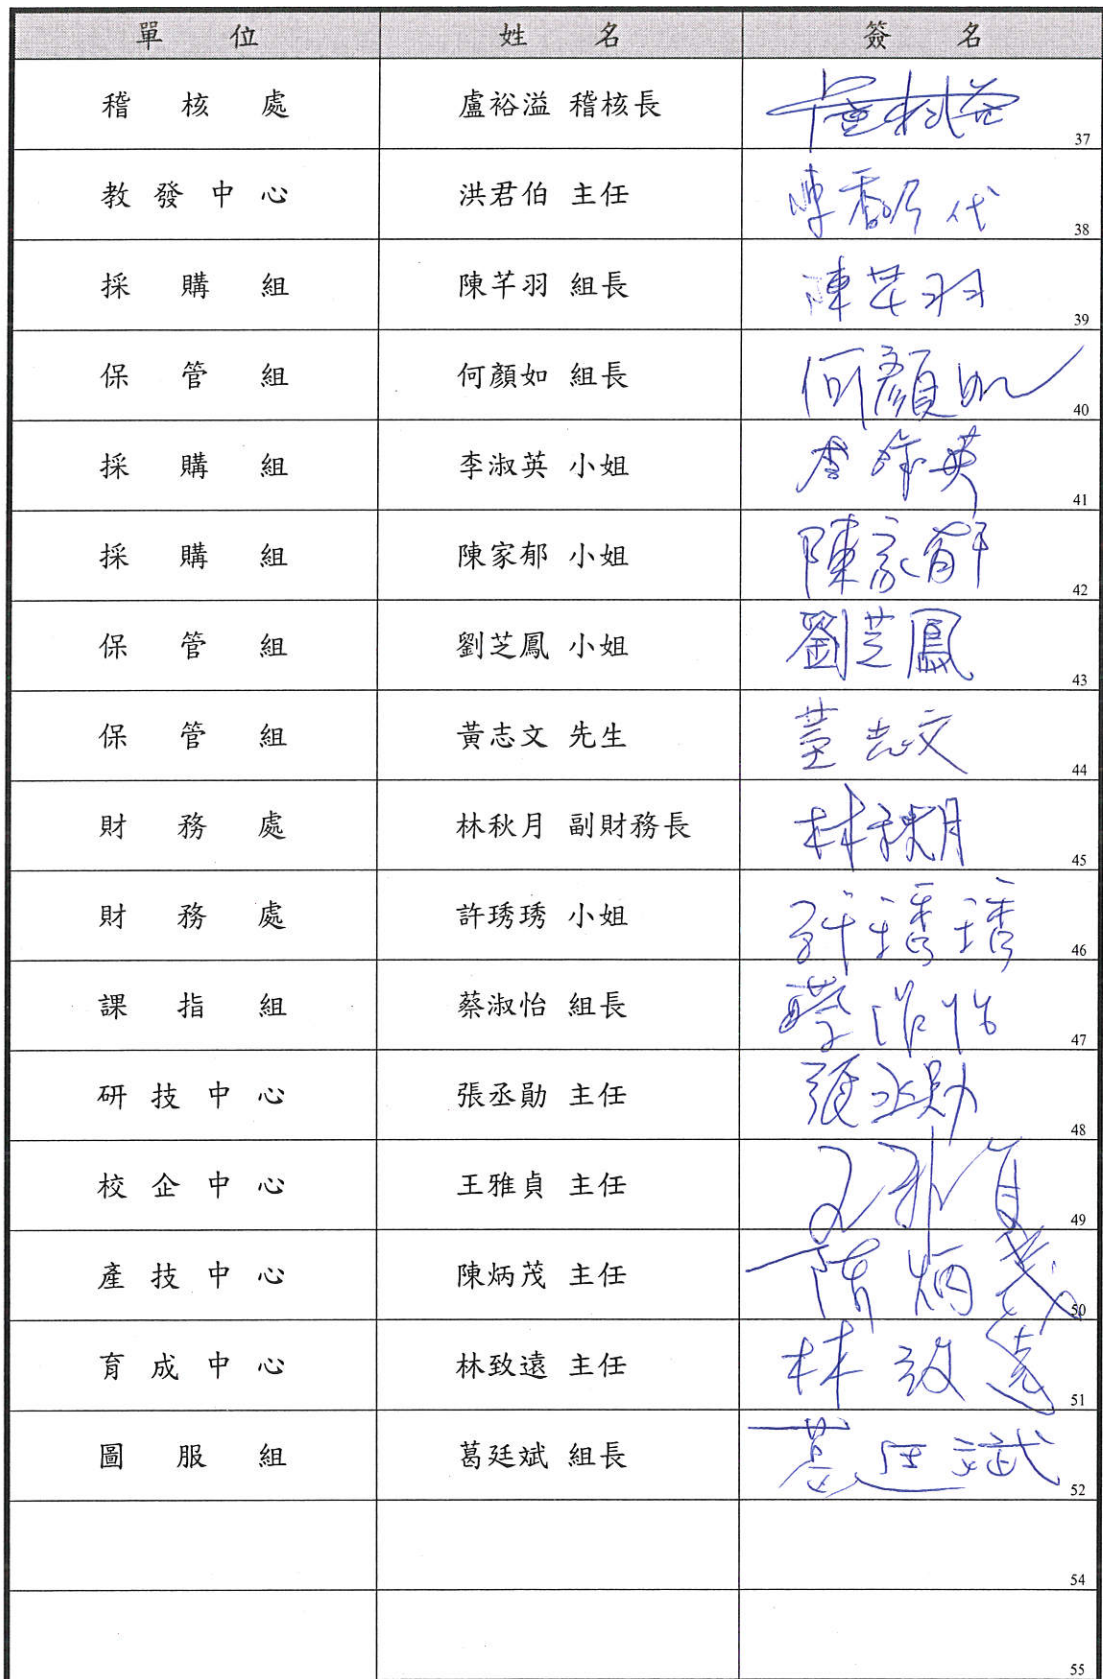 單位 姓名 簽名
稽核處 盧裕溢 稽核長 盧裕益 37
教發中心 洪君伯 主任 陳 代 38
採購組 陳芊羽 組長 陳芊羽 39
保管組 何顏如 組長 何顏如 40
採購組 李淑英 小姐 李淑英 41
採購組 陳家郁 小姐 陳家郁 42
保管組 劉芝鳳 小姐 劉芝鳳 43
保管組 黃志文 先生 黃志文 44
財務處 林秋月 副財務長 林秋月 45
財務處 許琇琇 小姐 許琇琇 46
課指組 蔡淑怡 組長 蔡淑怡 47
研技中心 張丞勛 主任 張丞勛 48
校企中心 王雅貞 主任 王雅貞 49
產技中心 陳炳茂 主任 陳炳茂 50
育成中心 林致遠 主任 林致遠 51
圖服組 葛廷斌 組長 葛廷斌 52
54
55